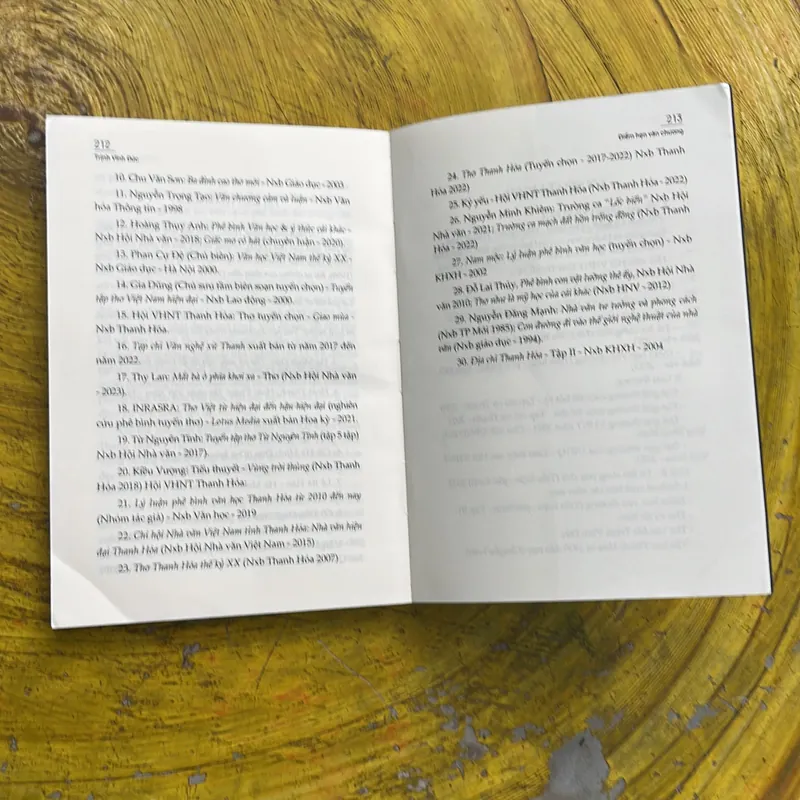 212
Trịnh Vĩnh Đức
10. Chu Văn Sơn: Ba đỉnh cao thơ mới - Nxb Giáo dục - 2003.
11. Nguyễn Trọng Tạo: Văn chương cảm và luận - Nxb Văn
hóa Thông tin - 1998
12. Hoàng Thụy Anh: Phê bình Văn học & ý thức cái khác -
Nxb Hội Nhà văn - 2018; Giấc mơ có hát (chuyên luận - 2020).
13. Phan Cự Đệ (Chủ biên): Văn học Việt Nam thế kỷ XX -
Nxb Giáo dục - Hà Nội 2000.
14. Gia Dũng (Chủ sưu tầm biên soạn tuyển chọn) - Tuyển
tập thơ Việt Nam hiện đại - Nxb Lao động - 2000.
15. Hội VHNT Thanh Hóa: Thơ tuyển chọn - Giao mùa -
Nxb Thanh Hóa.
16. Tạp chí Văn nghệ xứ Thanh xuất bản từ năm 2017 đến
năm 2022.
17. Thy Lan: Mắt bà ở phía khơi xa - Thơ (Nxb Hội Nhà văn
- 2023).
18. INRASRA: Thơ Việt từ hiện đại đến hậu hiện đại (nghiên
cứu phê bình tuyển thơ) - Lotus Media xuất bản Hoa kỳ - 2021.
19. Từ Nguyên Tĩnh: Tuyển tập thơ Từ Nguyên Tĩnh (tập 5 tập)
Nxb Hội Nhà văn - 2017).
20. Kiều Vượng: Tiểu thuyết - Vùng trời thủng (Nxb Thanh
Hóa 2018) Hội VHNT Thanh Hóa:
21. Lý luận phê bình văn học Thanh Hóa từ 2010 đến nay
(Nhóm tác giả) - Nxb Văn học - 2019
22. Chi hội Nhà văn Việt Nam tỉnh Thanh Hóa: Nhà văn hiện
đại Thanh Hóa (Nxb Hội Nhà văn Việt Nam - 2015)
23. Thơ Thanh Hóa thế kỷ XX (Nxb Thanh Hóa 2007)
213
Điểm hẹn văn chương
24. Thơ Thanh Hóa (Tuyển chọn - 2017-2022) Nxb Thanh
Hóa 2022)
25. Kỷ yếu - Hội VHNT Thanh Hóa (Nxb Thanh Hóa - 2022)
26. Nguyễn Minh Khiêm: Trường ca "Lốc biển" Nxb Hội
Nhà văn - 2021; Trường ca mạch đất hồn trống đồng (Nxb Thanh
Hóa - 2022)
27. Nam mộc: Lý luận phê bình văn học (tuyển chọn) - Nxb
KHXH - 2002
28. Đỗ Lai Thúy, Phê bình con vật lưỡng thê ấy, Nxb Hội Nhà
văn 2010; Thơ như là mỹ học của cái khác (Nxb HNV - 2012)
29. Nguyễn Đăng Mạnh: Nhà văn tư tưởng và phong cách
(Nxb TP Mới 1985); Con đường đi vào thế giới nghệ thuật của nhà
văn (Nxb giáo dục - 1994).
30. Địa chí Thanh Hóa - Tập II - Nxb KHXH - 2004